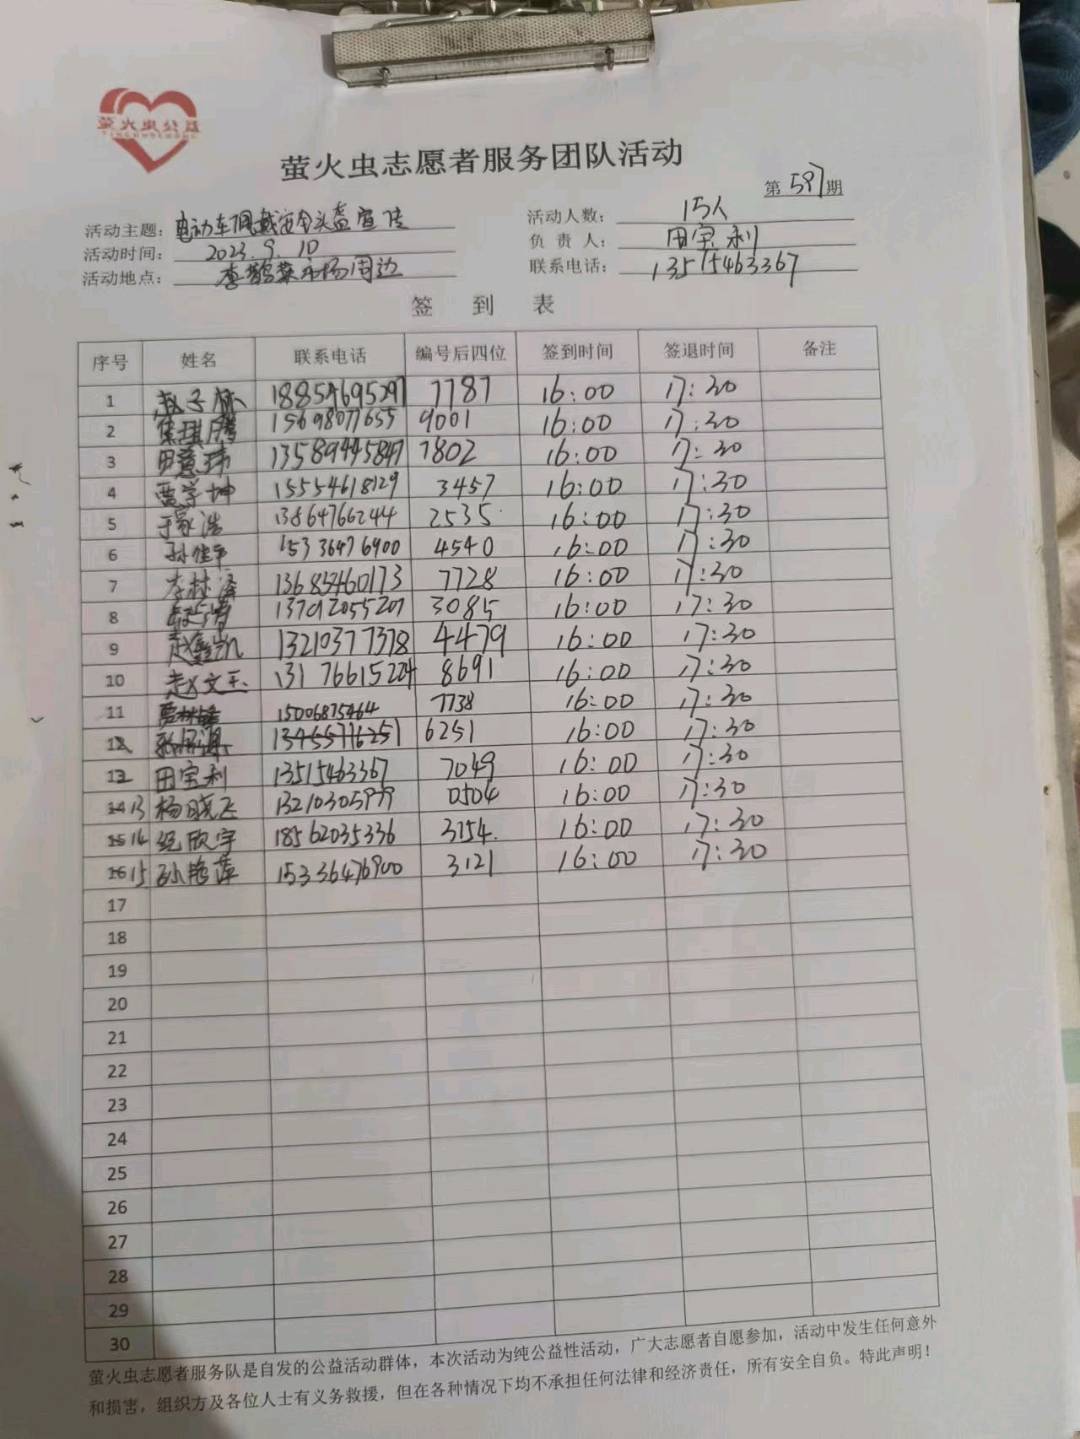 萤火虫公益
萤火虫志愿者服务团队活动
第597期
活动主题：电动车佩戴安全头盔宣传
活动人数：15人
活动时间：2023.9.10
负责人：田宝利
活动地点：李鹊菜市场周边
联系电话：13515463367
签到表
序号 姓名 联系电话 编号后四位 签到时间 签退时间 备注
1 赵子 7787 16:00 17:30
2 15698077655 9001 16:00 17:30
3 田 13589445847 7802 16:00 17:30
4 贾学坤 15554618129 3457 16:00 17:30
5 于家浩 13864766244 2535 16:00 17:30
6 孙佳 15336476900 4540 16:00 17:30
7 李林泽 13685460173 7728 16:00 17:30
8 3085 16:00 17:30
9 赵鑫凯 13210377378 4479 16:00 17:30
10 赵文玉 13176615224 8691 16:00 17:30
11 15006875464 7738 16:00 17:30
12 13455776251 6251 16:00 17:30
12 田宝利 13515463367 7049 16:00 17:30
13 杨晓飞 13210305979 0504 16:00 17:30
14 纪欣宇 18562035336 3154. 16:00 17:30
15 孙艳萍 15336476900 3121 16:00 17:30
17
18
19
20
21
22
23
24
25
26
27
28
29
30
萤火虫志愿者服务队是自发的公益活动群体，本次活动为纯公益性活动，广大志愿者自愿参加，活动中发生任何意外
和损害，组织方及各位人士有义务救援，但在各种情况下均不承担任何法律和经济责任，所有安全自负。特此声明！